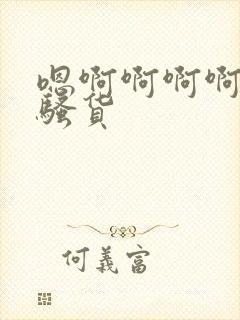 嗯啊啊啊啊
骚货
何義富